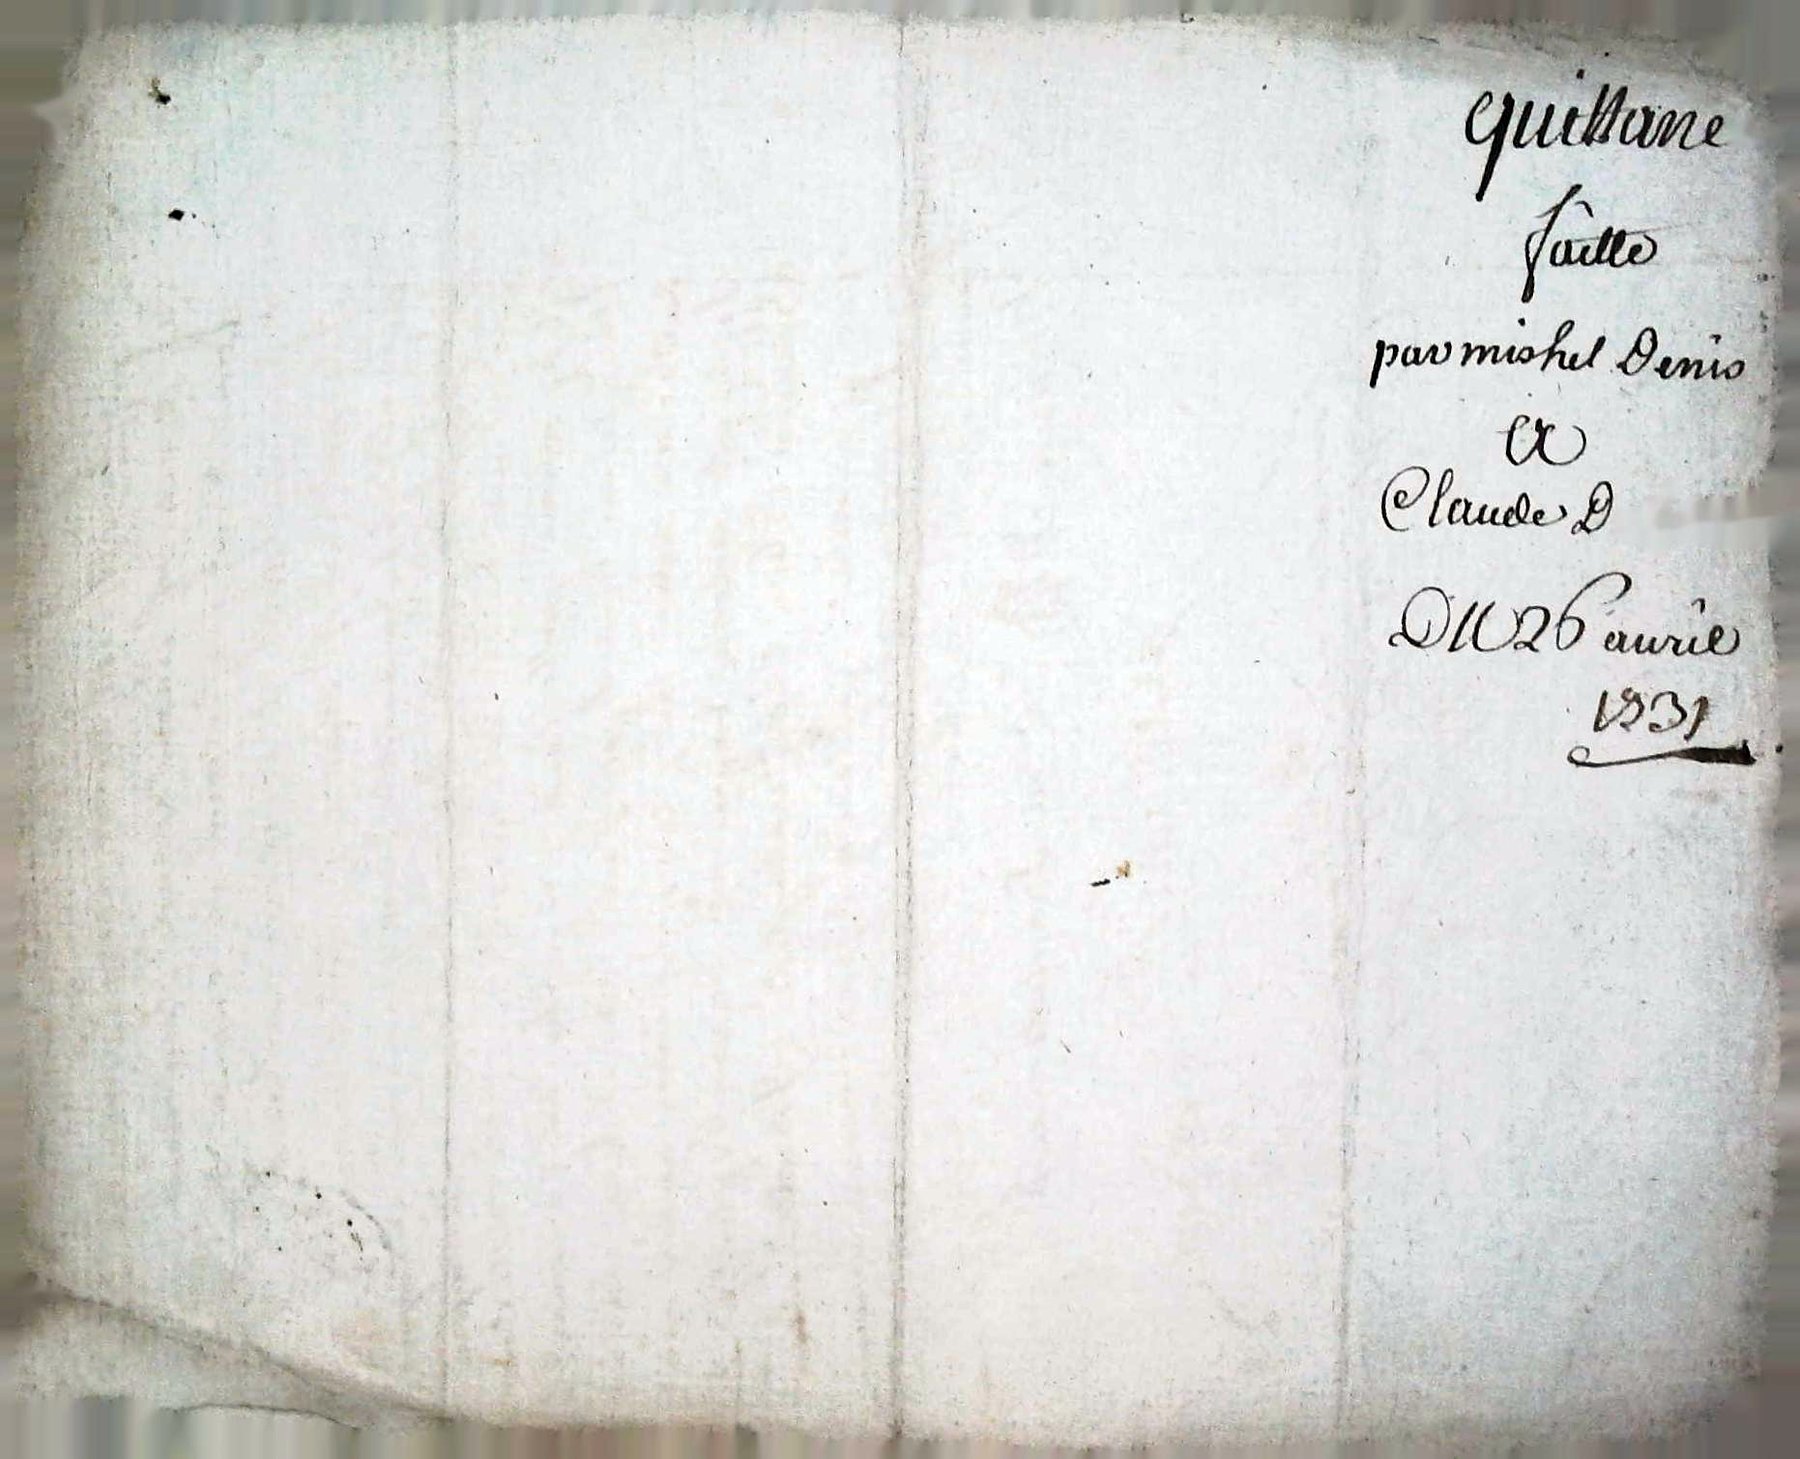 quittane
faitte
par mishel Denis
a
Claude D
DU 26 avril
1831